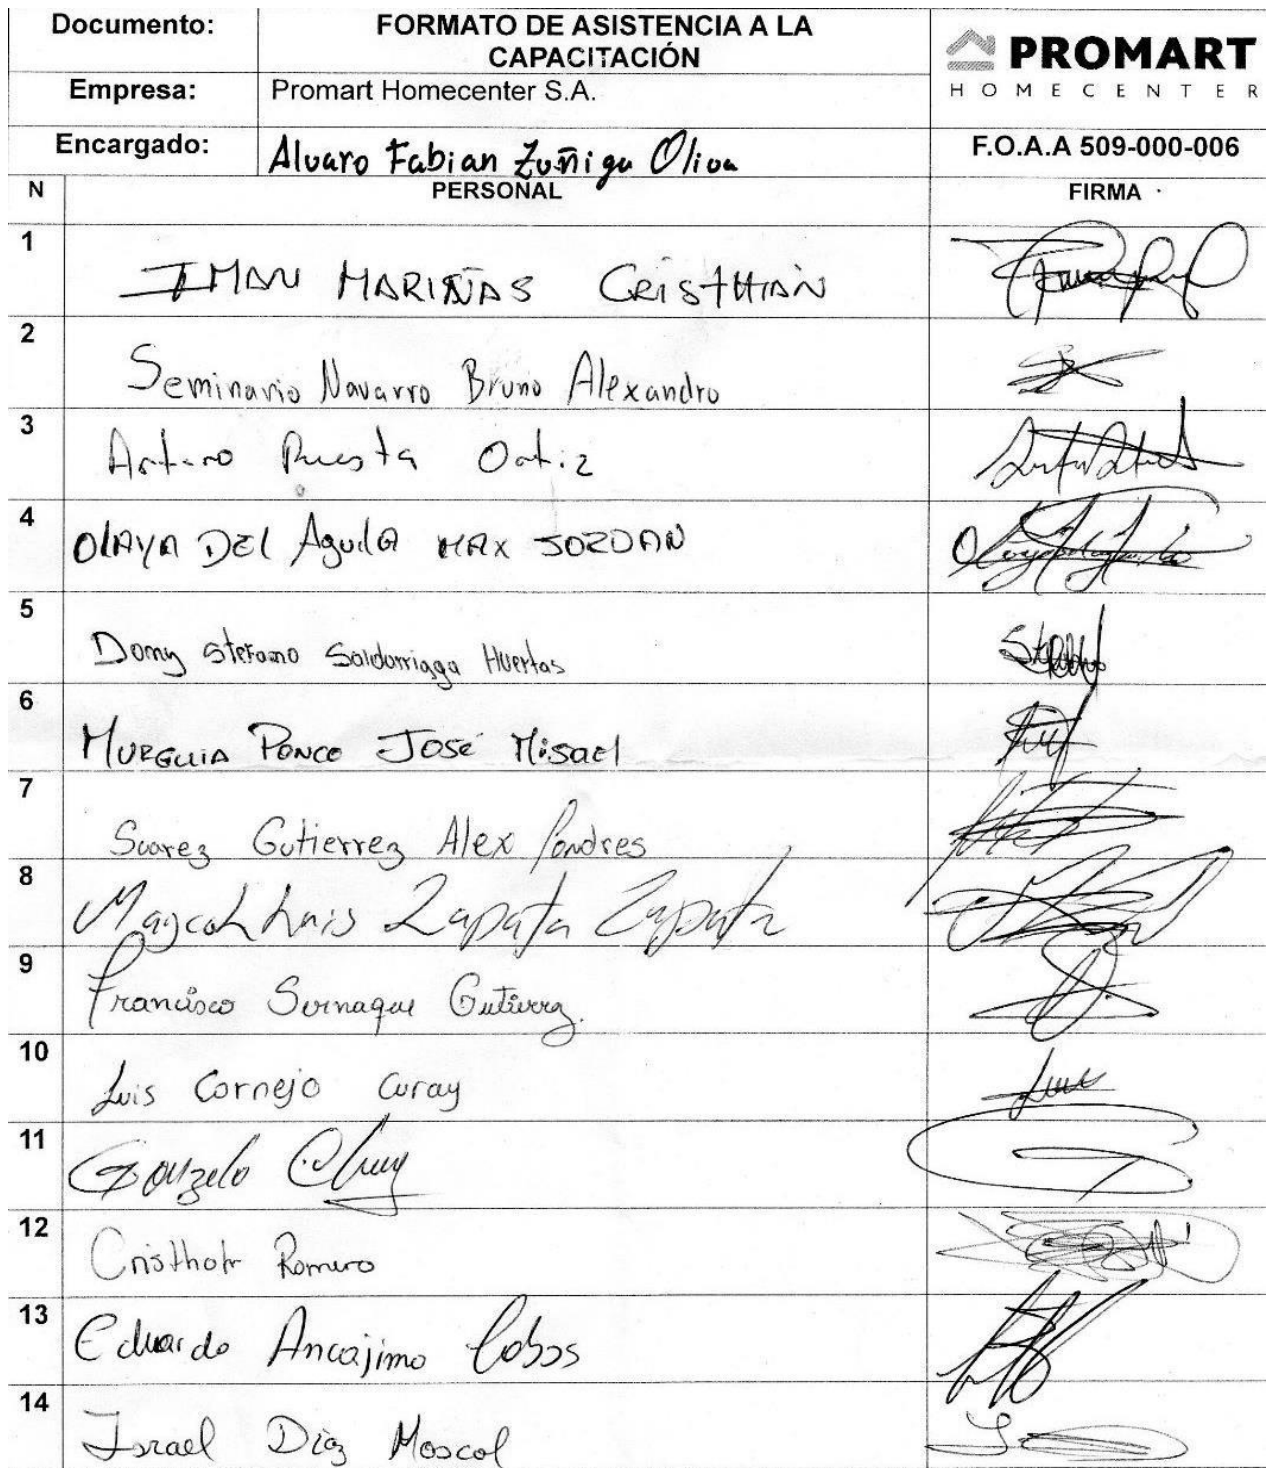 Documento:
FORMATO DE ASISTENCIA A LA
CAPACITACIÓN
PROMART
HOMECENTER
Empresa:
Promart Homecenter S.A.
Encargado:
Alvaro Fabian Zuñiga Oliva
F.O.A.A 509-000-006
N PERSONAL FIRMA
1 IMAN MARIÑAS CRISTHIAN
2 Seminario Navarro Bruno Alexandro
3 Arturo Puesta Ortiz
4 OLAYA DEL Aguila MAX JORDAN
5 Domy Stefano Saldarriaga Huertas
6 MURGUIA PONCE JOSÉ Misael
7 Suarez Gutierrez Alex Andres
8 Luis Zapata Zapata
9 Francisco Sernaque Gutierrez.
10 Luis Cornejo Curay
11 Gonzalo
12 Romero
13 Eduardo Ancajima Cobos
14 Israel Diaz Moscol